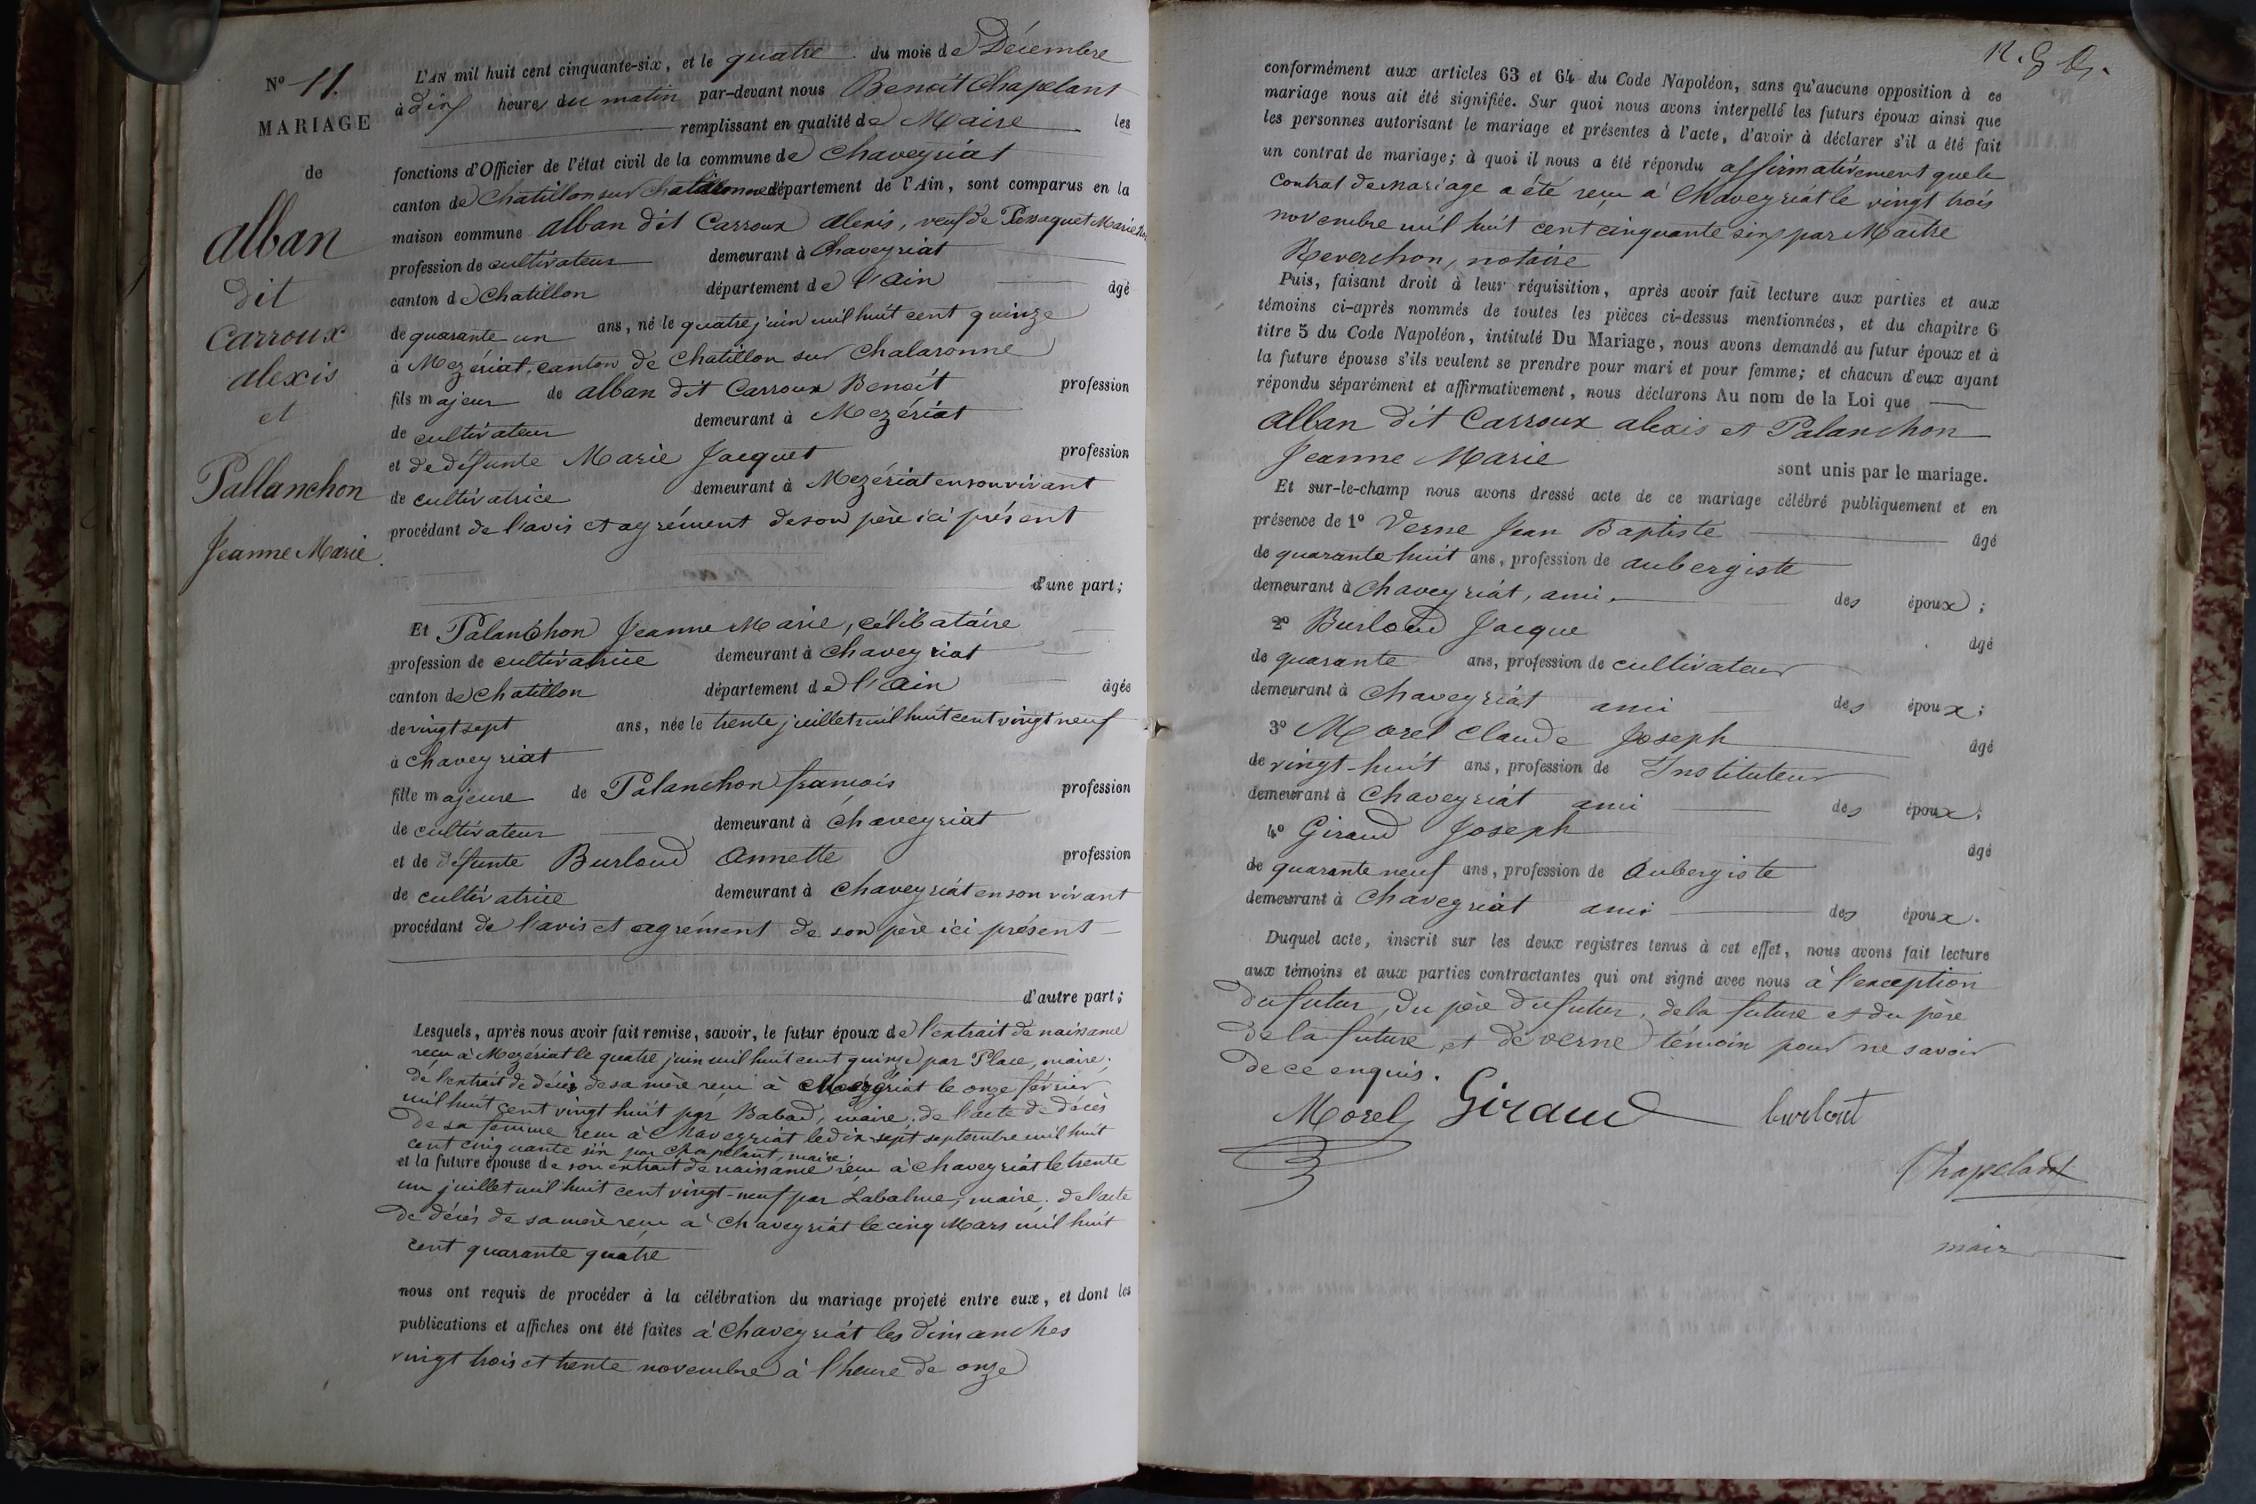 N° 11.
MARIAGE
de
alban
dit
Carroux
alexis
et
Pallanchon
Jeanne Marie.
L'AN mil huit cent cinquante-six, et le quatre du mois de Décembre
à dix heures du matin par-devant nous Benoit Chapelant
remplissant en qualité de Maire les
fonctions d'Officier de l'état civil de la commune de Chaveyriat
canton de Chatillon sur Chalaronne département de l'Ain, sont comparus en la
maison commune alban dit Carroux alexis, veuf de Marie
profession de cultivateur demeurant à Chaveyriat
canton de Chatillon département de l'ain âgé
de quarante un ans, né le quatre juin mil huit cent quinze
à Mezériat, canton de Chatillon sur Chalaronne
fils majeur de alban dit Carroux Benoit profession
de cultivateur demeurant à Mezériat
et de défunte Marie Jacquet profession
de cultivatrice demeurant à Mezériat en son vivant
procédant de l'avis et agrément de son père ici présent
d'une part;
Et Palanchon Jeanne Marie, célibataire
profession de cultivatrice demeurant à Chaveyriat
canton de Chatillon département de l'ain âgée
de vingt sept ans, née le trente juillet mil huit cent vingt neuf
à Chaveyriat
fille majeure de Palanchon françois profession
de cultivateur demeurant à Chaveyriat
et de défunte Burloud Annette profession
de cultivatrice demeurant à Chaveyriat en son vivant
procédant de l'avis et agrément de son père ici présent
d'autre part;
Lesquels, après nous avoir fait remise, savoir, le futur époux de l'extrait de naissance
reçu à Mezériat le quatre juin mil huit cent quinze par Place, maire;
de l'extrait de décès de sa mère reçu à Mezériat le onze février
mil huit cent vingt huit par Babad, maire; de l'acte de décès
de sa femme reçu à Chaveyriat le dix-sept septembre mil huit
cent cinquante six par Chapelant, maire;
et la future épouse de son extrait de naissance reçu à Chaveyriat le trente
un juillet mil huit cent vingt-neuf par Labalme, maire. de l'acte
de décès de sa mère reçu à Chaveyriat le cinq Mars mil huit
cent quarante quatre
nous ont requis de procéder à la célébration du mariage projeté entre eux, et dont les
publications et affiches ont été faites à Chaveyriat les dimanches
vingt trois et trente novembre à l'heure de onze
conformément aux articles 63 et 64 du Code Napoléon, sans qu'aucune opposition à ce
mariage nous ait été signifiée. Sur quoi nous avons interpellé les futurs époux ainsi que
les personnes autorisant le mariage et présentes à l'acte, d'avoir à déclarer s'il a été fait
un contrat de mariage; à quoi il nous a été répondu affirmativement que le
contrat de mariage a été reçu à Chaveyriat le vingt trois
novembre mil huit cent cinquante six par Maitre
Reverchon, notaire
Puis, faisant droit à leur réquisition, après avoir fait lecture aux parties et aux
témoins ci-après nommés de toutes les pièces ci-dessus mentionnées, et du chapitre 6
titre 5 du Code Napoléon, intitulé Du Mariage, nous avons demandé au futur époux et à
la future épouse s'ils veulent se prendre pour mari et pour femme; et chacun d'eux ayant
répondu séparément et affirmativement, nous déclarons Au nom de la Loi que
alban dit Carroux alexis et Palanchon
Jeanne Marie sont unis par le mariage.
Et sur-le-champ nous avons dressé acte de ce mariage célébré publiquement et en
présence de 1° Verne Jean Baptiste âgé
de quarante huit ans, profession de aubergiste
demeurant à Chaveyriat, ami, des époux;
2° Burloud Jacque âgé
de quarante ans, profession de cultivateur
demeurant à Chaveyriat ami des époux;
3° Morel Claude Joseph âgé
de vingt-huit ans, profession de Instituteur
demeurant à Chaveyriat ami des époux;
4° Giraud Joseph âgé
de quarante neuf ans, profession de Aubergiste
demeurant à Chaveyriat ami des époux.
Duquel acte, inscrit sur les deux registres tenus à cet effet, nous avons fait lecture
aux témoins et aux parties contractantes qui ont signé avec nous à l'exception
du futur, du père du futur, de la future et du père
de la future, et de verne témoin pour ne savoir
de ce enquis.
Morel Giraud burlout
Chapelant
maire